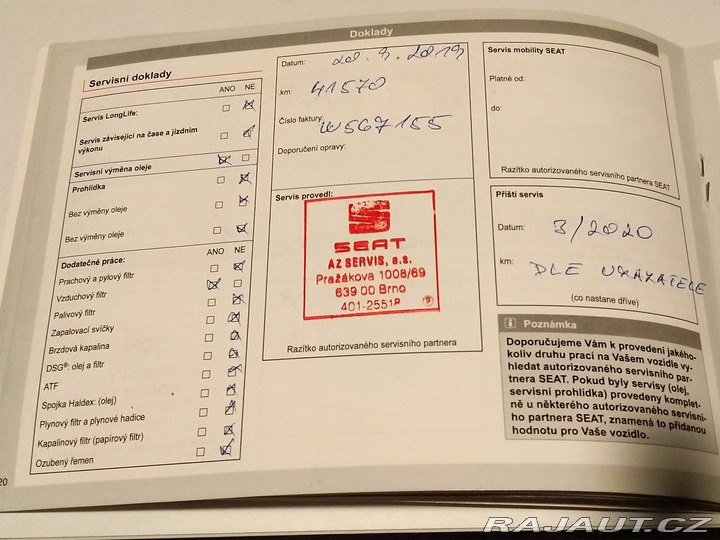 Doklady
Servisní doklady
ANO NE
Servis LongLife:
Servis závisející na čase a jízdním
výkonu
Servisní výměna oleje
Prohlídka
Bez výměny oleje
Bez výměny oleje
ANO NE
Dodatečné práce:
Prachový a pylový filtr
Vzduchový filtr
Palivový filtr
Zapalovací svíčky
Brzdová kapalina
DSG®: olej a filtr
ATF
Spojka Haldex: (olej)
Plynový filtr a plynové hadice
Kapalinový filtr (papírový filtr)
Ozubený řemen
20
Datum: 20.9.2019
km: 41570
Číslo faktury: W567155
Doporučení opravy:
Servis provedl:
SEAT
AZ SERVIS, a.s.
Pražákova 1008/69
639 00 Brno
401-2551P
Razítko autorizovaného servisního partnera
Servis mobility SEAT
Platné od:
do:
Razítko autorizovaného servisního partnera SEAT
Příští servis
Datum: 3/2020
km: DLE UKAZATELE
(co nastane dříve)
i Poznámka
Doporučujeme Vám k provedení jakého-
koliv druhu prací na Vašem vozidle vy-
hledat autorizovaného servisního par-
tnera SEAT. Pokud byly servisy (olej,
servisní prohlídka) provedeny komplet-
ně u některého autorizovaného servisní-
ho partnera SEAT, znamená to přidanou
hodnotu pro Vaše vozidlo.
RAJAUT.CZ